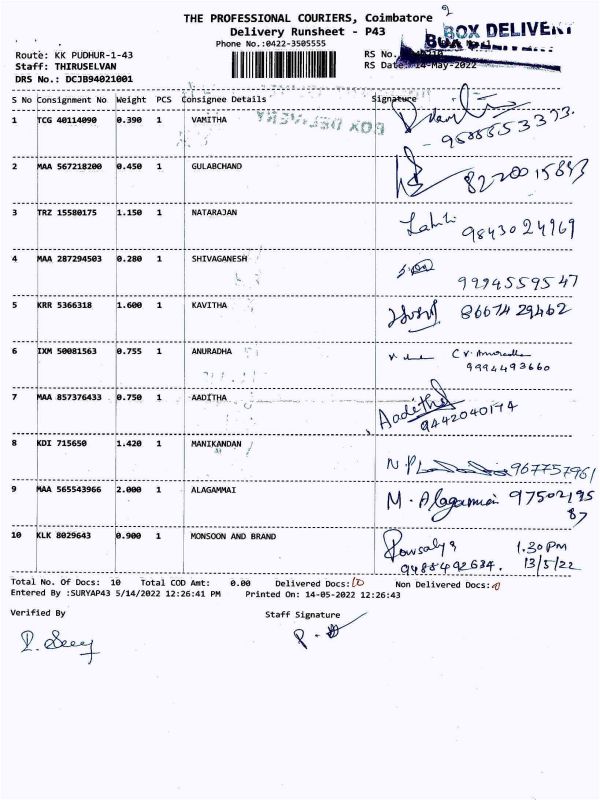 THE PROFESSIONAL COURIERS, Coimbatore
BOX DELIVERY
Delivery Runsheet - P43
Phone No.:0422-3505555
Route: KK PUDHUR-1-43
RS No.
Staff: THIRUSELVAN
RS Date: 14-May-2022
DRS No.: DCJB94021001
S No Consignment No Weight PCS Consignee Details Signature
BOX DELIVERY
1 TCG 40114090 0.390 1 VAMITHA
2 MAA 567218200 0.450 1 GULABCHAND
3 TRZ 15580175 1.150 1 NATARAJAN 9843024969
4 MAA 287294503 0.280 1 SHIVAGANESH 9994559547
5 KRR 5366318 1.600 1 KAVITHA 8667429462
6 IXM 50081563 0.755 1 ANURADHA C.V. Anuradha
9994493660
7 MAA 857376433 0.750 1 AADITHA Aaditha
9442040174
8 KDI 715650 1.420 1 MANIKANDAN 967757961
9 MAA 565543966 2.000 1 ALAGAMMAI M. Alagammai 97502195
87
10 KLK 8029643 0.900 1 MONSOON AND BRAND Kowsalya 1.30PM
9488492634. 13/5/22
Total No. Of Docs: 10 Total COD Amt: 0.00 Delivered Docs: 10 Non Delivered Docs: 0
Entered By :SURYAP43 5/14/2022 12:26:41 PM Printed On: 14-05-2022 12:26:43
Verified By Staff Signature